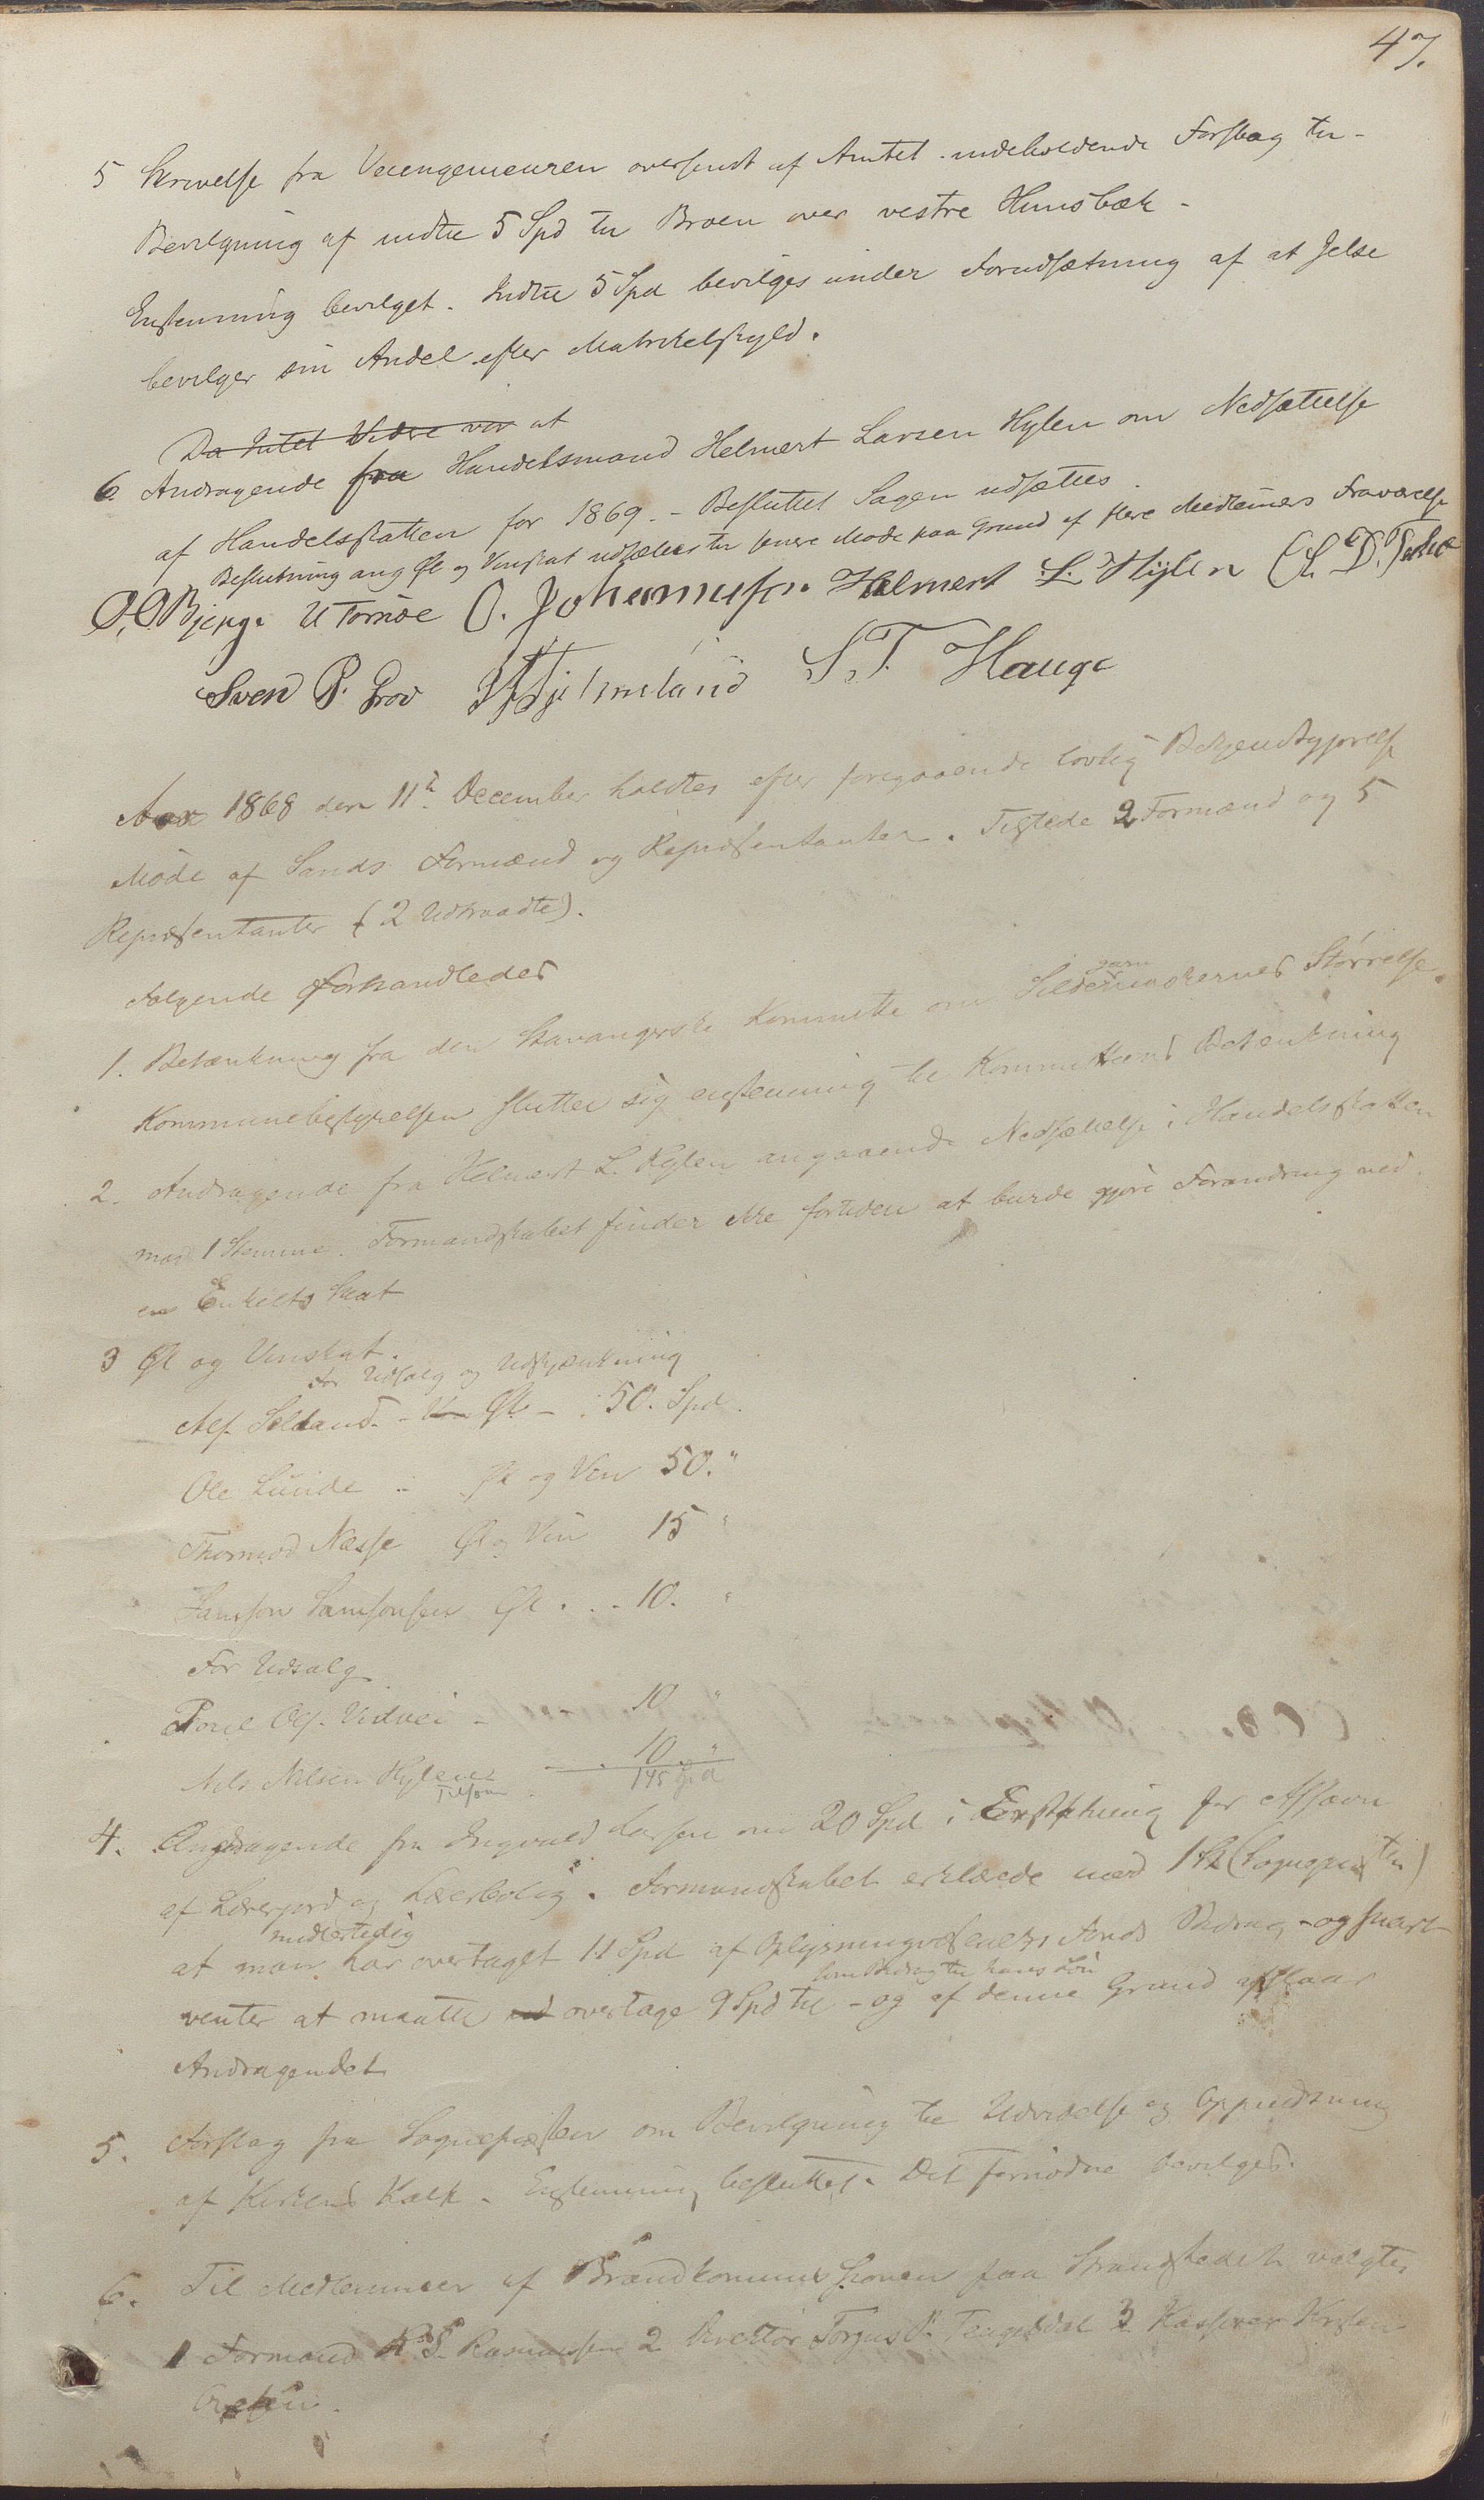 47.
5 Skrivelse fra Veiingenieuren oversendt af Amtet indeholdende Forslag til
Bevilgning af indtil 5 Spd til Broen over vestre Hunsbæk -
Enstemmig bevilget. Indtil 5 Spd bevilges under Forudsætning af at Jelse
bevilger sin Andel efter Matrikelskyld.
Da Intet Videre var at
6. Andragende fra Handelsmand Helmert Larsen Hylen om Nedsættelse
af Handelsskatten for 1869. - Besluttet Sagen udsættes.
Beslutning ang Øl og Vinskat udsættes til senere Møde paa Grund af flere Medlemmers Fraværelse
O. O Bjerge U Tornøe O. Johannessen Helmert L. Hylen
Sven P. Hjelmeland S. T. Hauge
Aar 1868 den 11te December holdtes efter foregaaende lovlig Bekjendtgjørelse
Møde af Sands Formænd og Repræsentanter. Tilstede 2 Formænd og 5
Repræsentanter (2 Udtraadte).
Følgende Forhandledes
1. Betænkning fra den Stavangerske Kommitte om Silde garn Størrelse.
Kommunebestyrelsen slutter sig enstemmig til Kommitteens Betenkning
2. Andragende fra Helmert L. Hylen angaaende Nedsættelse i Handelsskatten
mod 1 Stemme. Formandskabet finder ikke fortiden at burde gjøre Forandring ved
en Enkelts Skat
3 Øl og Vinskat.
for Udsalg og Udskjænkning
Alf. Seland - Øl - 50. Spd.
Ole Lunde .. Øl og Vin 50. "
Thormod Næsse Øl og Vin 15 "
Samson Samsonsen Øl . . - 10. "
For Udsalg
Poul Ol. Vidvei - 10 "
Nils Nilsen Hylen - . 10 "
Tilsam 145 Spd
4. Andragende fra Ingvald Larsen om 20 Spd i Erstatning for Afsavn
af Lærerjord og Lærerbolig. Formandskabet erklærede mod 1 St (Sognepresten)
midlertidig
at man har overtaget 11 Spd af Oplysningsvæsenets Fonds Bidrag - og snart
som Bidrag til hans Løn
venter at maatte overtage 9 Spd til - og af denne Grund afslaar
Andragendet
5. Forslag fra Sognepresten om Bevilgning til Udvidelse og Oppudsning
af Kirkens Kalk. Enstemmig besluttet. Det fornødne bevilges.
6. Til Medlemmer af Brandkommissionen paa Strandstedet valgtes
1 Formand R. S. Rasmussen 2 Direktør 3. Kasserer